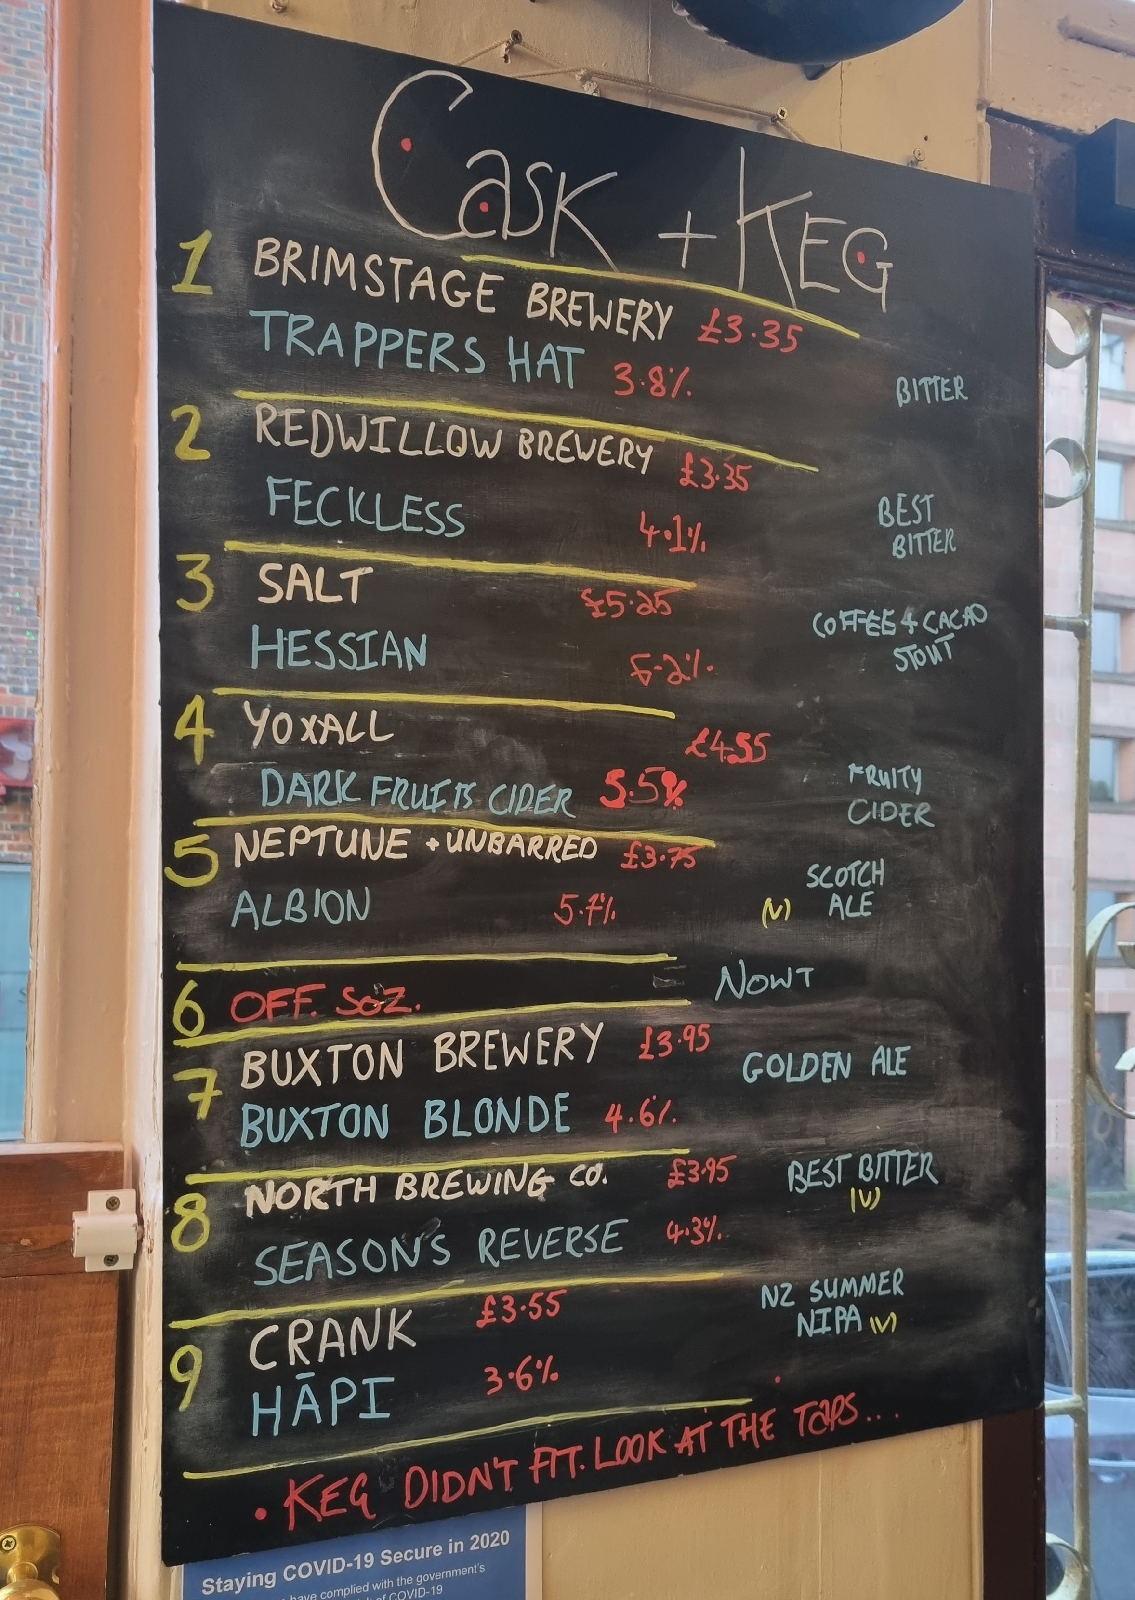 Cask + Keg
1 BRIMSTAGE BREWERY £3.35
TRAPPERS HAT 3.8% BITTER
2 REDWILLOW BREWERY £3.35
FECKLESS 4.1% BEST
BITTER
3 SALT £5.25 COFFEE & CACAO
STOUT
HESSIAN 6.2%
4 YOXALL £4.55
DARK FRUITS CIDER 5.5% FRUITY
CIDER
5 NEPTUNE + UNBARRED £3.75 SCOTCH
ALE
ALBION 5.7% (V)
6 OFF. SOZ. NOWT
7 BUXTON BREWERY £3.95 GOLDEN ALE
BUXTON BLONDE 4.6%
8 NORTH BREWING CO. £3.95 BEST BITTER
(V)
SEASONS REVERSE 4.3%
9 CRANK £3.55 NZ SUMMER
NIPA (V)
HĀPI 3.6%
• KEG DIDN'T FIT. LOOK AT THE TAPS...
Staying COVID-19 Secure in 2020
have complied with the government's
of COVID-19